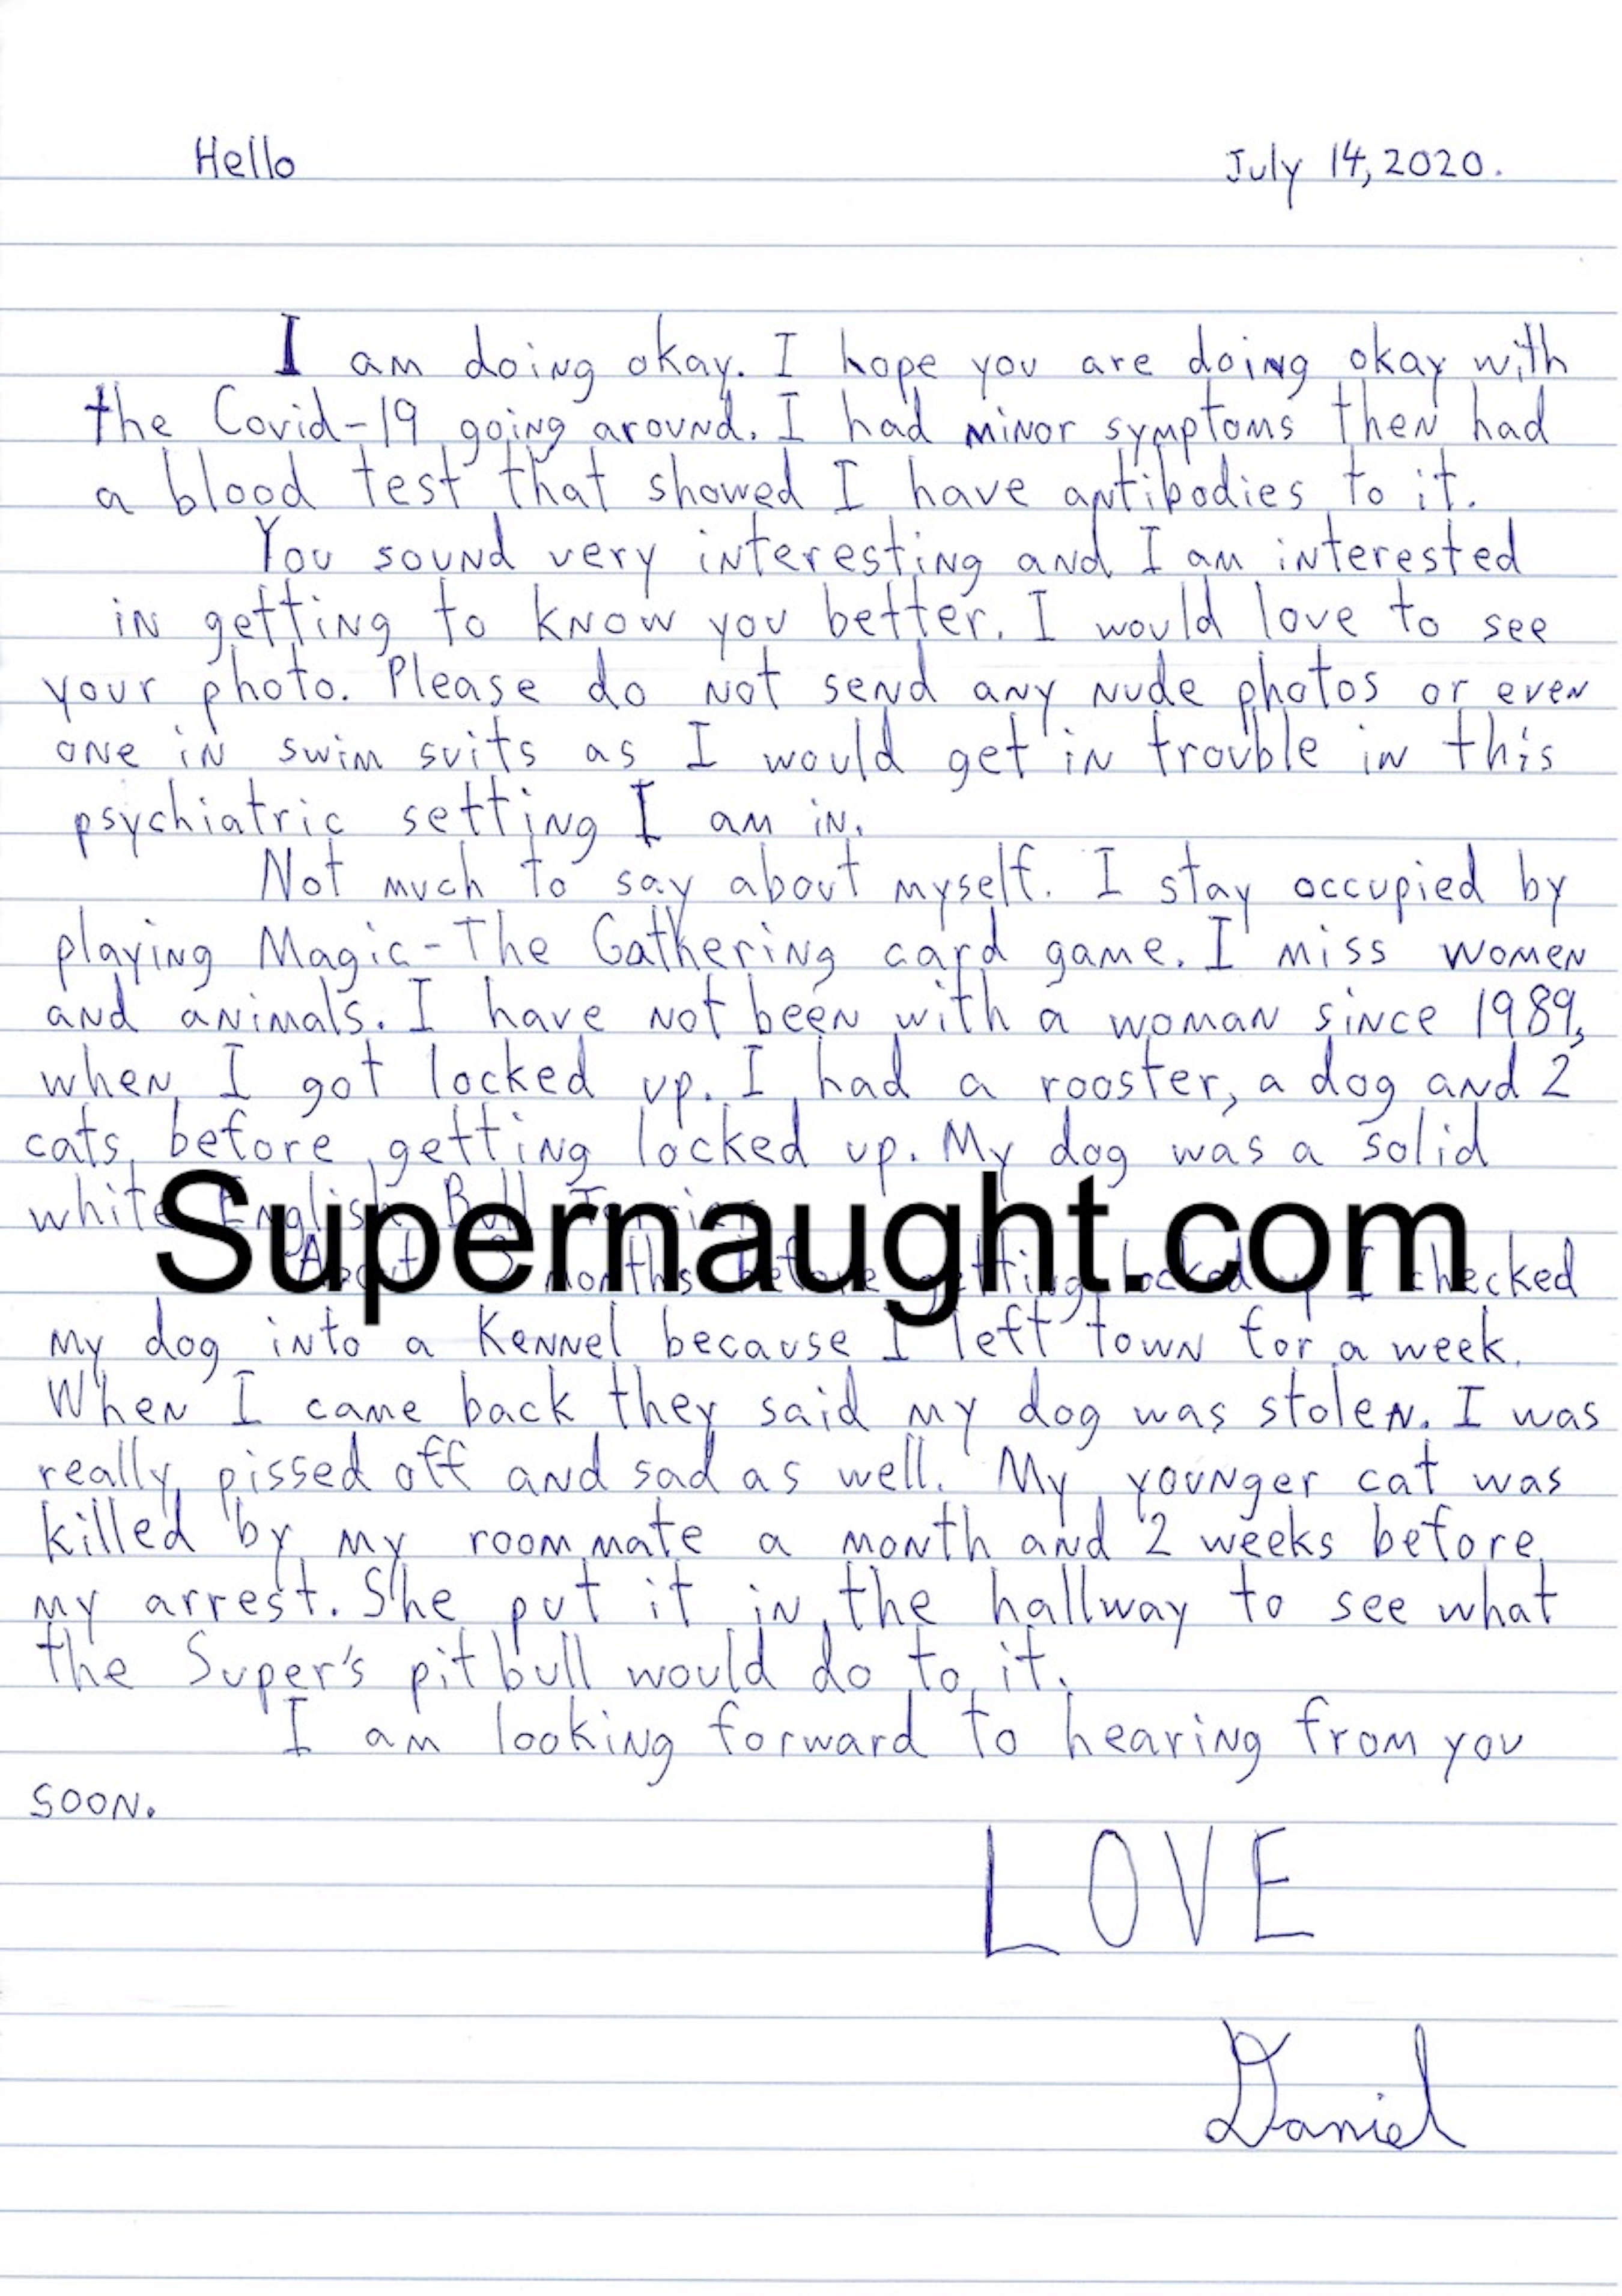 Hello
July 14, 2020.
I am doing okay. I hope you are doing okay with
the Covid-19 going around. I had minor symptoms then had
a blood test that showed I have antibodies to it.
You sound very interesting and I am interested
in getting to know you better. I would love to see
your photo. Please do not send any nude photos or even
one in swim suits as I would get in trouble in this
psychiatric setting I am in.
Not much to say about myself. I stay occupied by
playing Magic-The Gathering card game. I miss women
and animals. I have not been with a woman since 1989,
when I got locked up. I had a rooster, a dog and 2
cats before getting locked up. My dog was a solid
white English Bull Terrier
Supernaught.com
About 3 months before getting locked up I checked
my dog into a kennel because I left town for a week.
When I came back they said my dog was stolen. I was
really pissed off and sad as well. My younger cat was
killed by my roommate a month and 2 weeks before
my arrest. She put it in the hallway to see what
the Super's pitbull would do to it.
I am looking forward to hearing from you
soon.
LOVE
Daniel